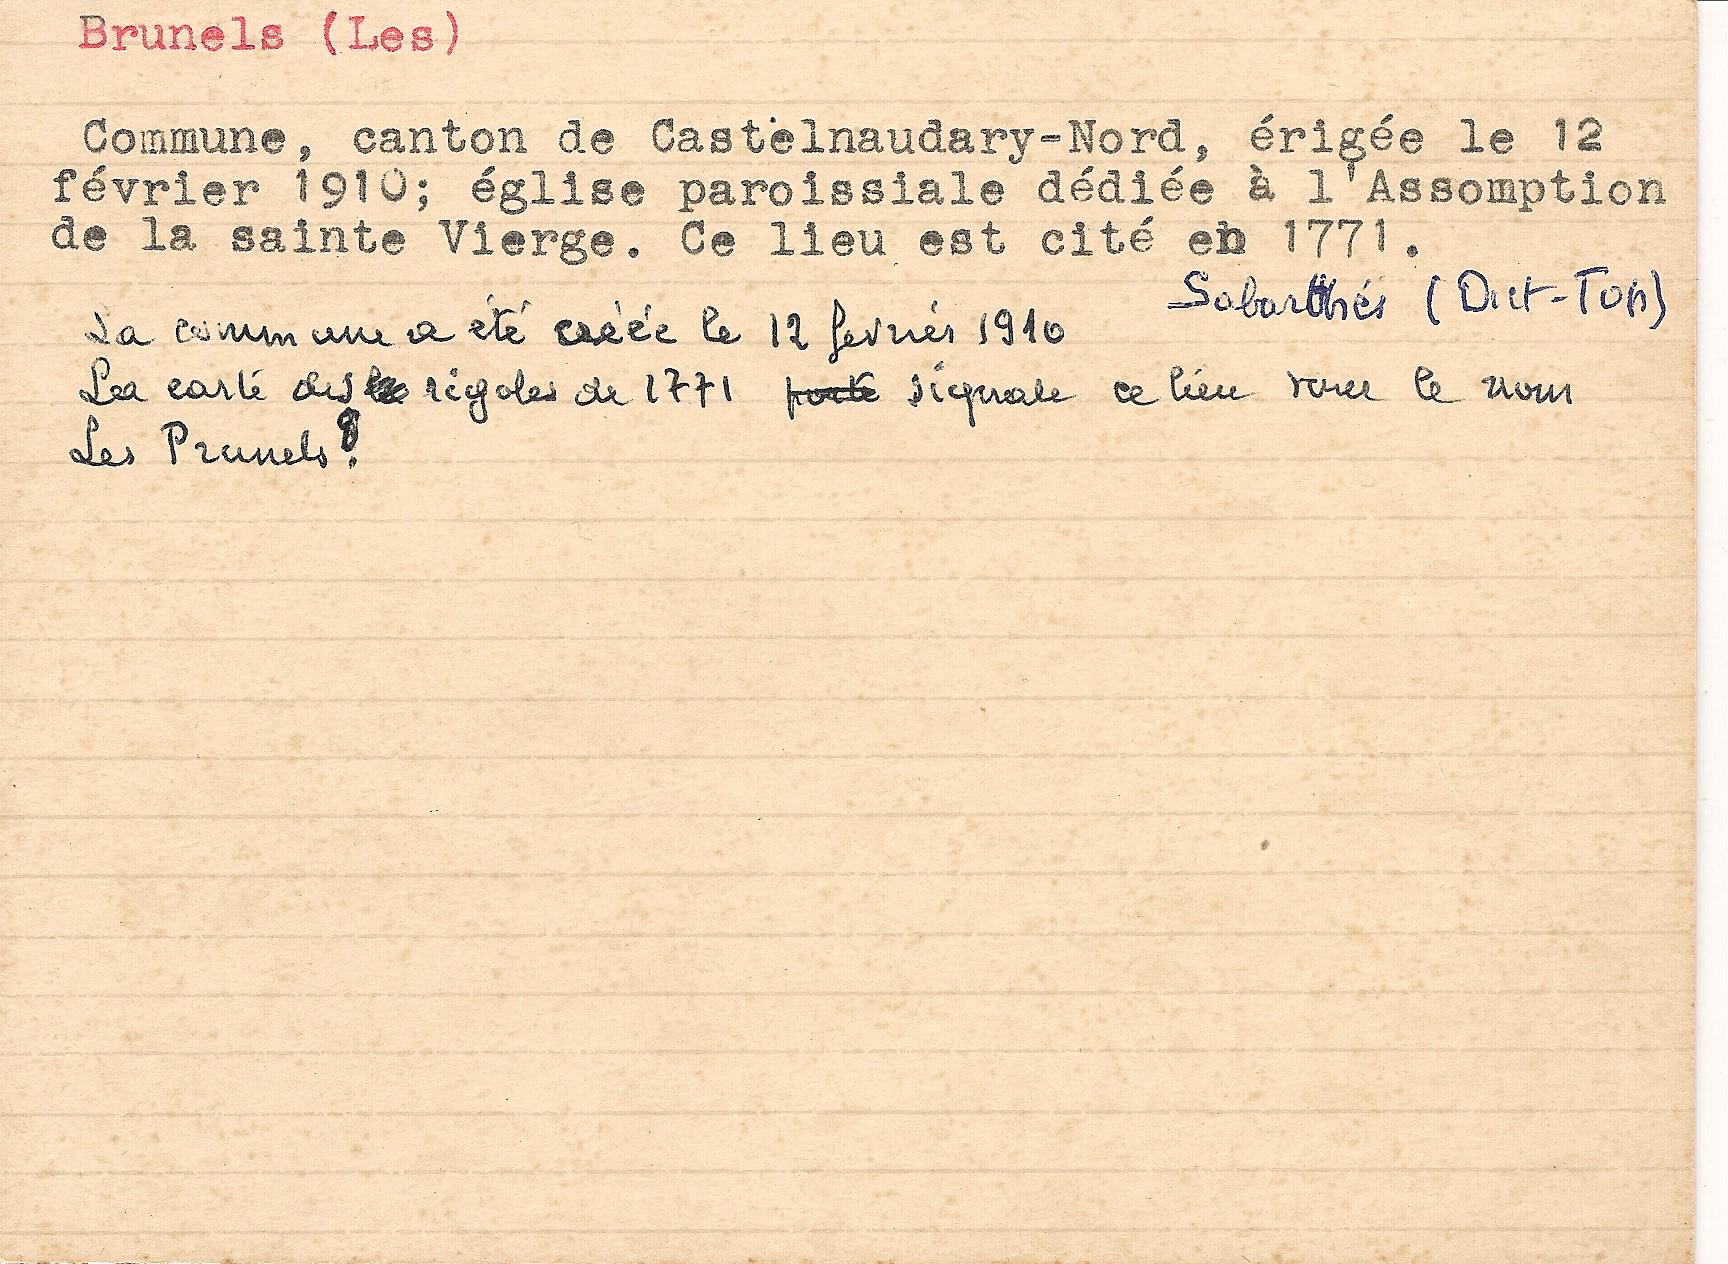 Brunels (Les)
Commune, canton de Castelnaudary-Nord, érigée le 12
février 1910; église paroissiale dédiée à l'Assomption
de la sainte Vierge. Ce lieu est cité en 1771.
Sabarthés (Dict-Top)
La commune a été créée le 12 fevriér 1910
La carte des rigoles de 1771 porte signale ce lieu sous le nom
Les Prunels?